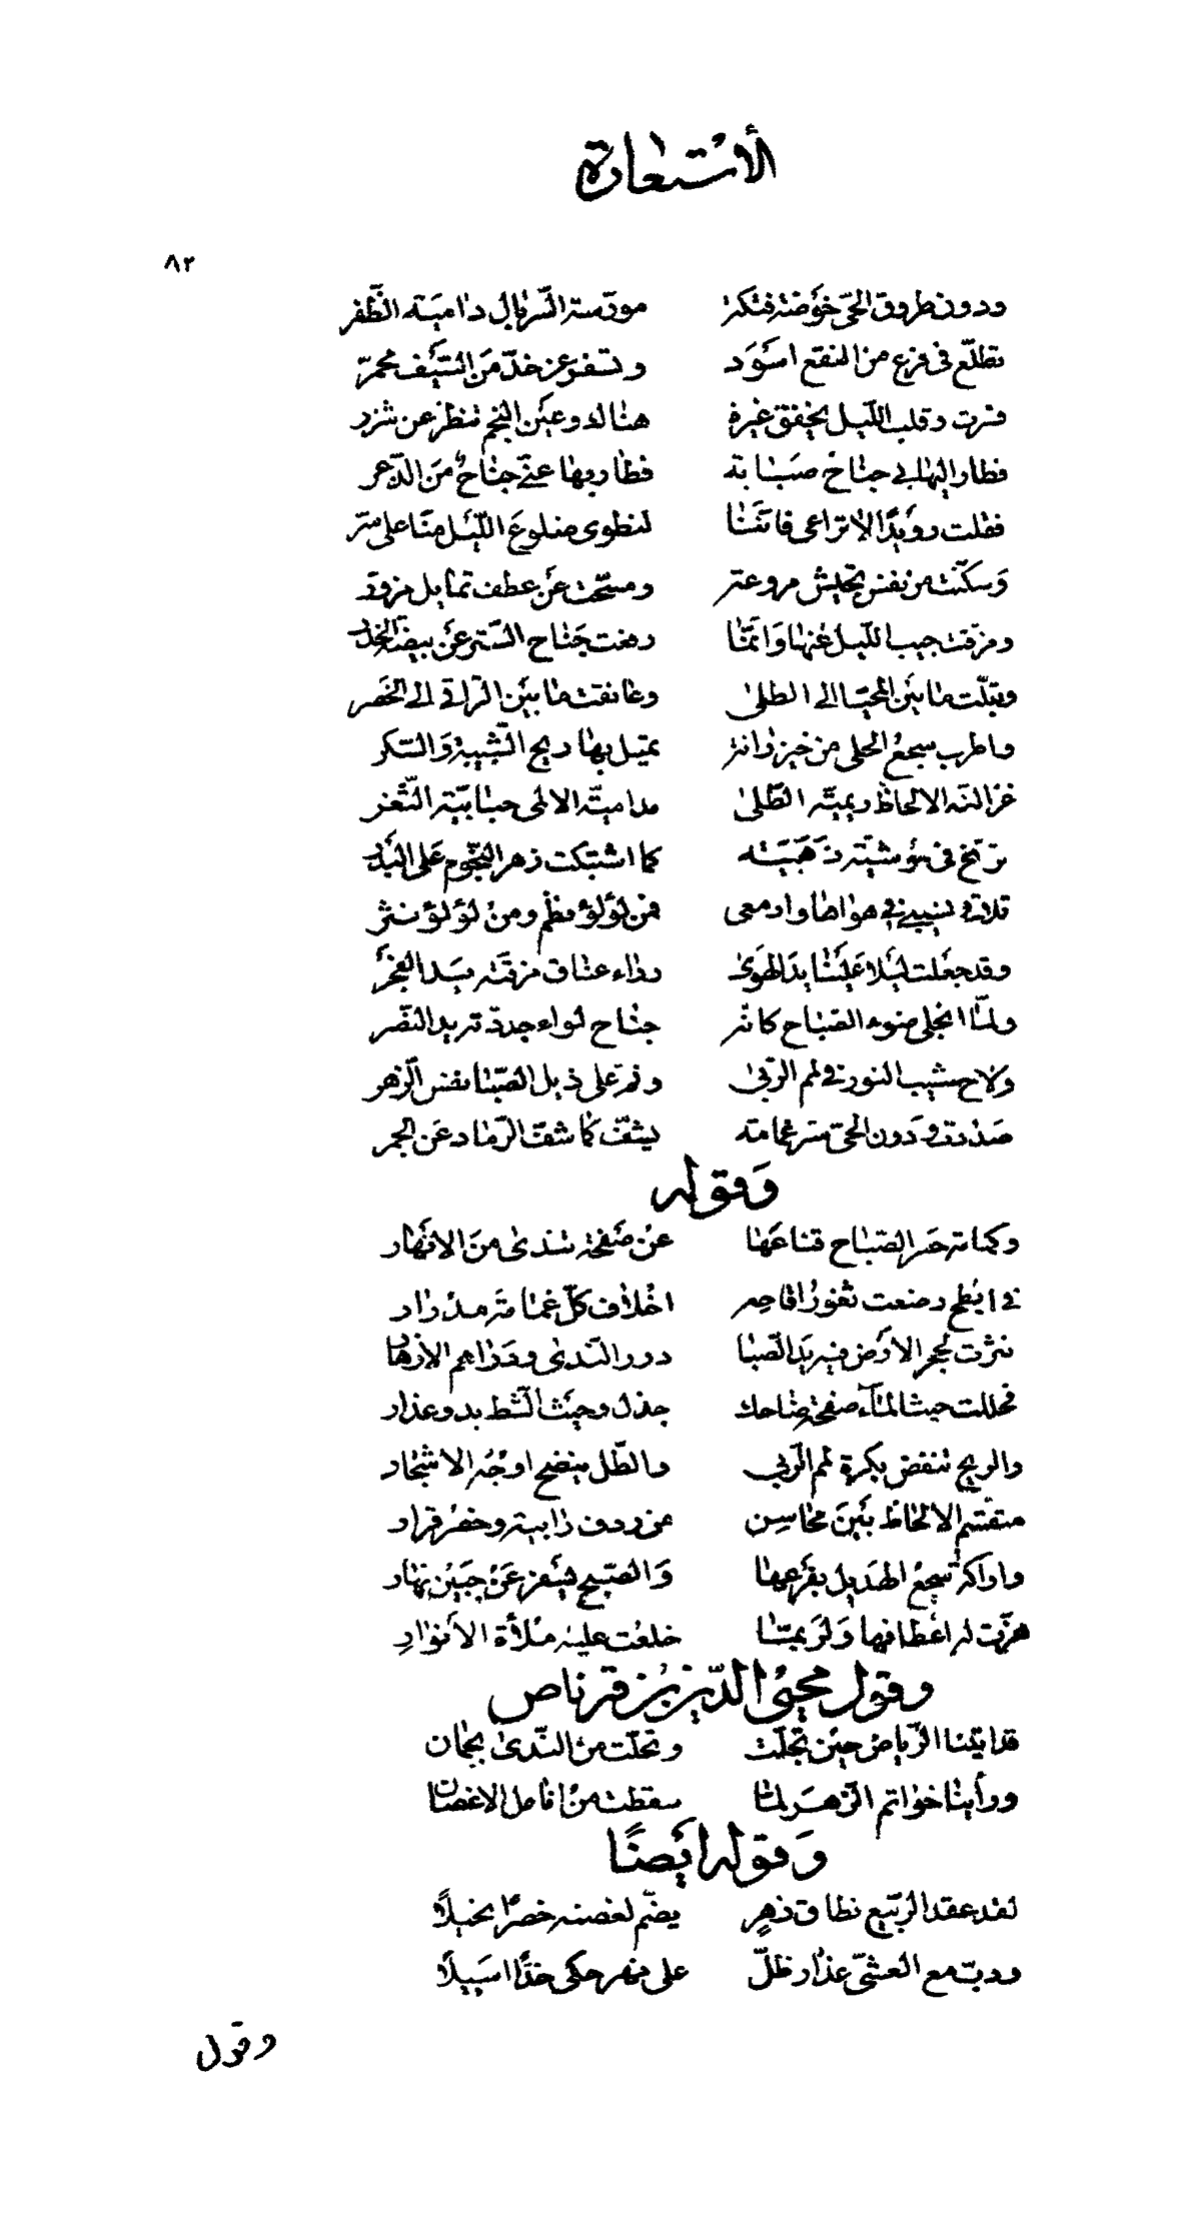 الاستعارة
٨٢
ودون طروق الحيّ خوضة فتكة مورّسة السربال دامية الظّفر
تطلّع في فرع من النقع اسود وتسفر عن خدّ من السّيف محمرّ
فسرت وقلب الليل يخفق غيرة هناك وعين النجم تنظر عن شزر
فطار اليها بي جناح صبابة فطار بها عنّي جناح من الذّعر
فقلت رويدًا لا تراعي فاننا لنطوي ضلوع الليل منّا على سرّ
وسكّنت من نفس تجيش مروعة ومسّحت عن عطف تمايل مزورّ
ومزّقت جيب الليل عنها وانّما رفعت جناح السّتر عن بيضة الخدر
وقبّلت ما بين المحيّا الى الطلى وعانقت ما بين التراقي الى الخصر
واطرب سجع الحلي من خيزرانة يميل بها ريح الشبيبة والسّكر
غزالة الالحاظ ريمية الطّلى مدامية الالمى حبابية الثّغر
ترنّح في موشيّة ذهبيّة كما اشتبكت زهر النجوم على البدر
تلاقى نسيبي في هواها وادمعي فمن لؤلؤ نظم ومن لؤلؤ نثر
وقد جعلت ليلا علينا يد الهوى رداء عناق مزقته يد الفجر
ولمّا انجلى ضوء الصّباح كانه جناح لواء جدة تريد النصر
ولاح مشيب النور في لمم الربى ونمّ على ذيل الصّبا نفس الزهر
صددت ودون الحيّ ستر غمامة يشفّ كما شفّ الرّماد عن الجمر
وقوله
وكمامة حسر الصّباح قناعها عن صفحة تندى من الانهار
في ابطح رضعت ثغور اقاحه اخلاف كلّ غمامة مدرار
نثرت لحجر الارض فيه يد الصّبا درر النّدى ودراهم الازهار
فحللت حيث الماء صفحة ضاحك جذل وحيث الشّط بدو عذار
والريح تنفض بكرة لمم الربى والطّل ينضح اوجه الاشجار
متقسّم الالحاظ بين محاسن من ردف رابية وخصر قرار
واراكة سجع الهديل بفرعها والصّبح يسفر عن جبين نهار
هزّت له اعطافها ولربّما خلعت عليه ملأة الأنوارِ
وقول محيي الدّين بن قرناص
قد اتينا الرّياض حين تجلّت وتحلّت من النّدى بجمان
ورأينا خواتم الزهر لمّا سقطت من انامل الاغصان
وقوله ايضًا
لقد عقد الربيع نطاق زهرٍ يضمّ لغصنه خصرًا نحيلًا
ودبّ مع العشيّ عذار ظلّ على نهر حكى خدًّا اسيلًا
وقول